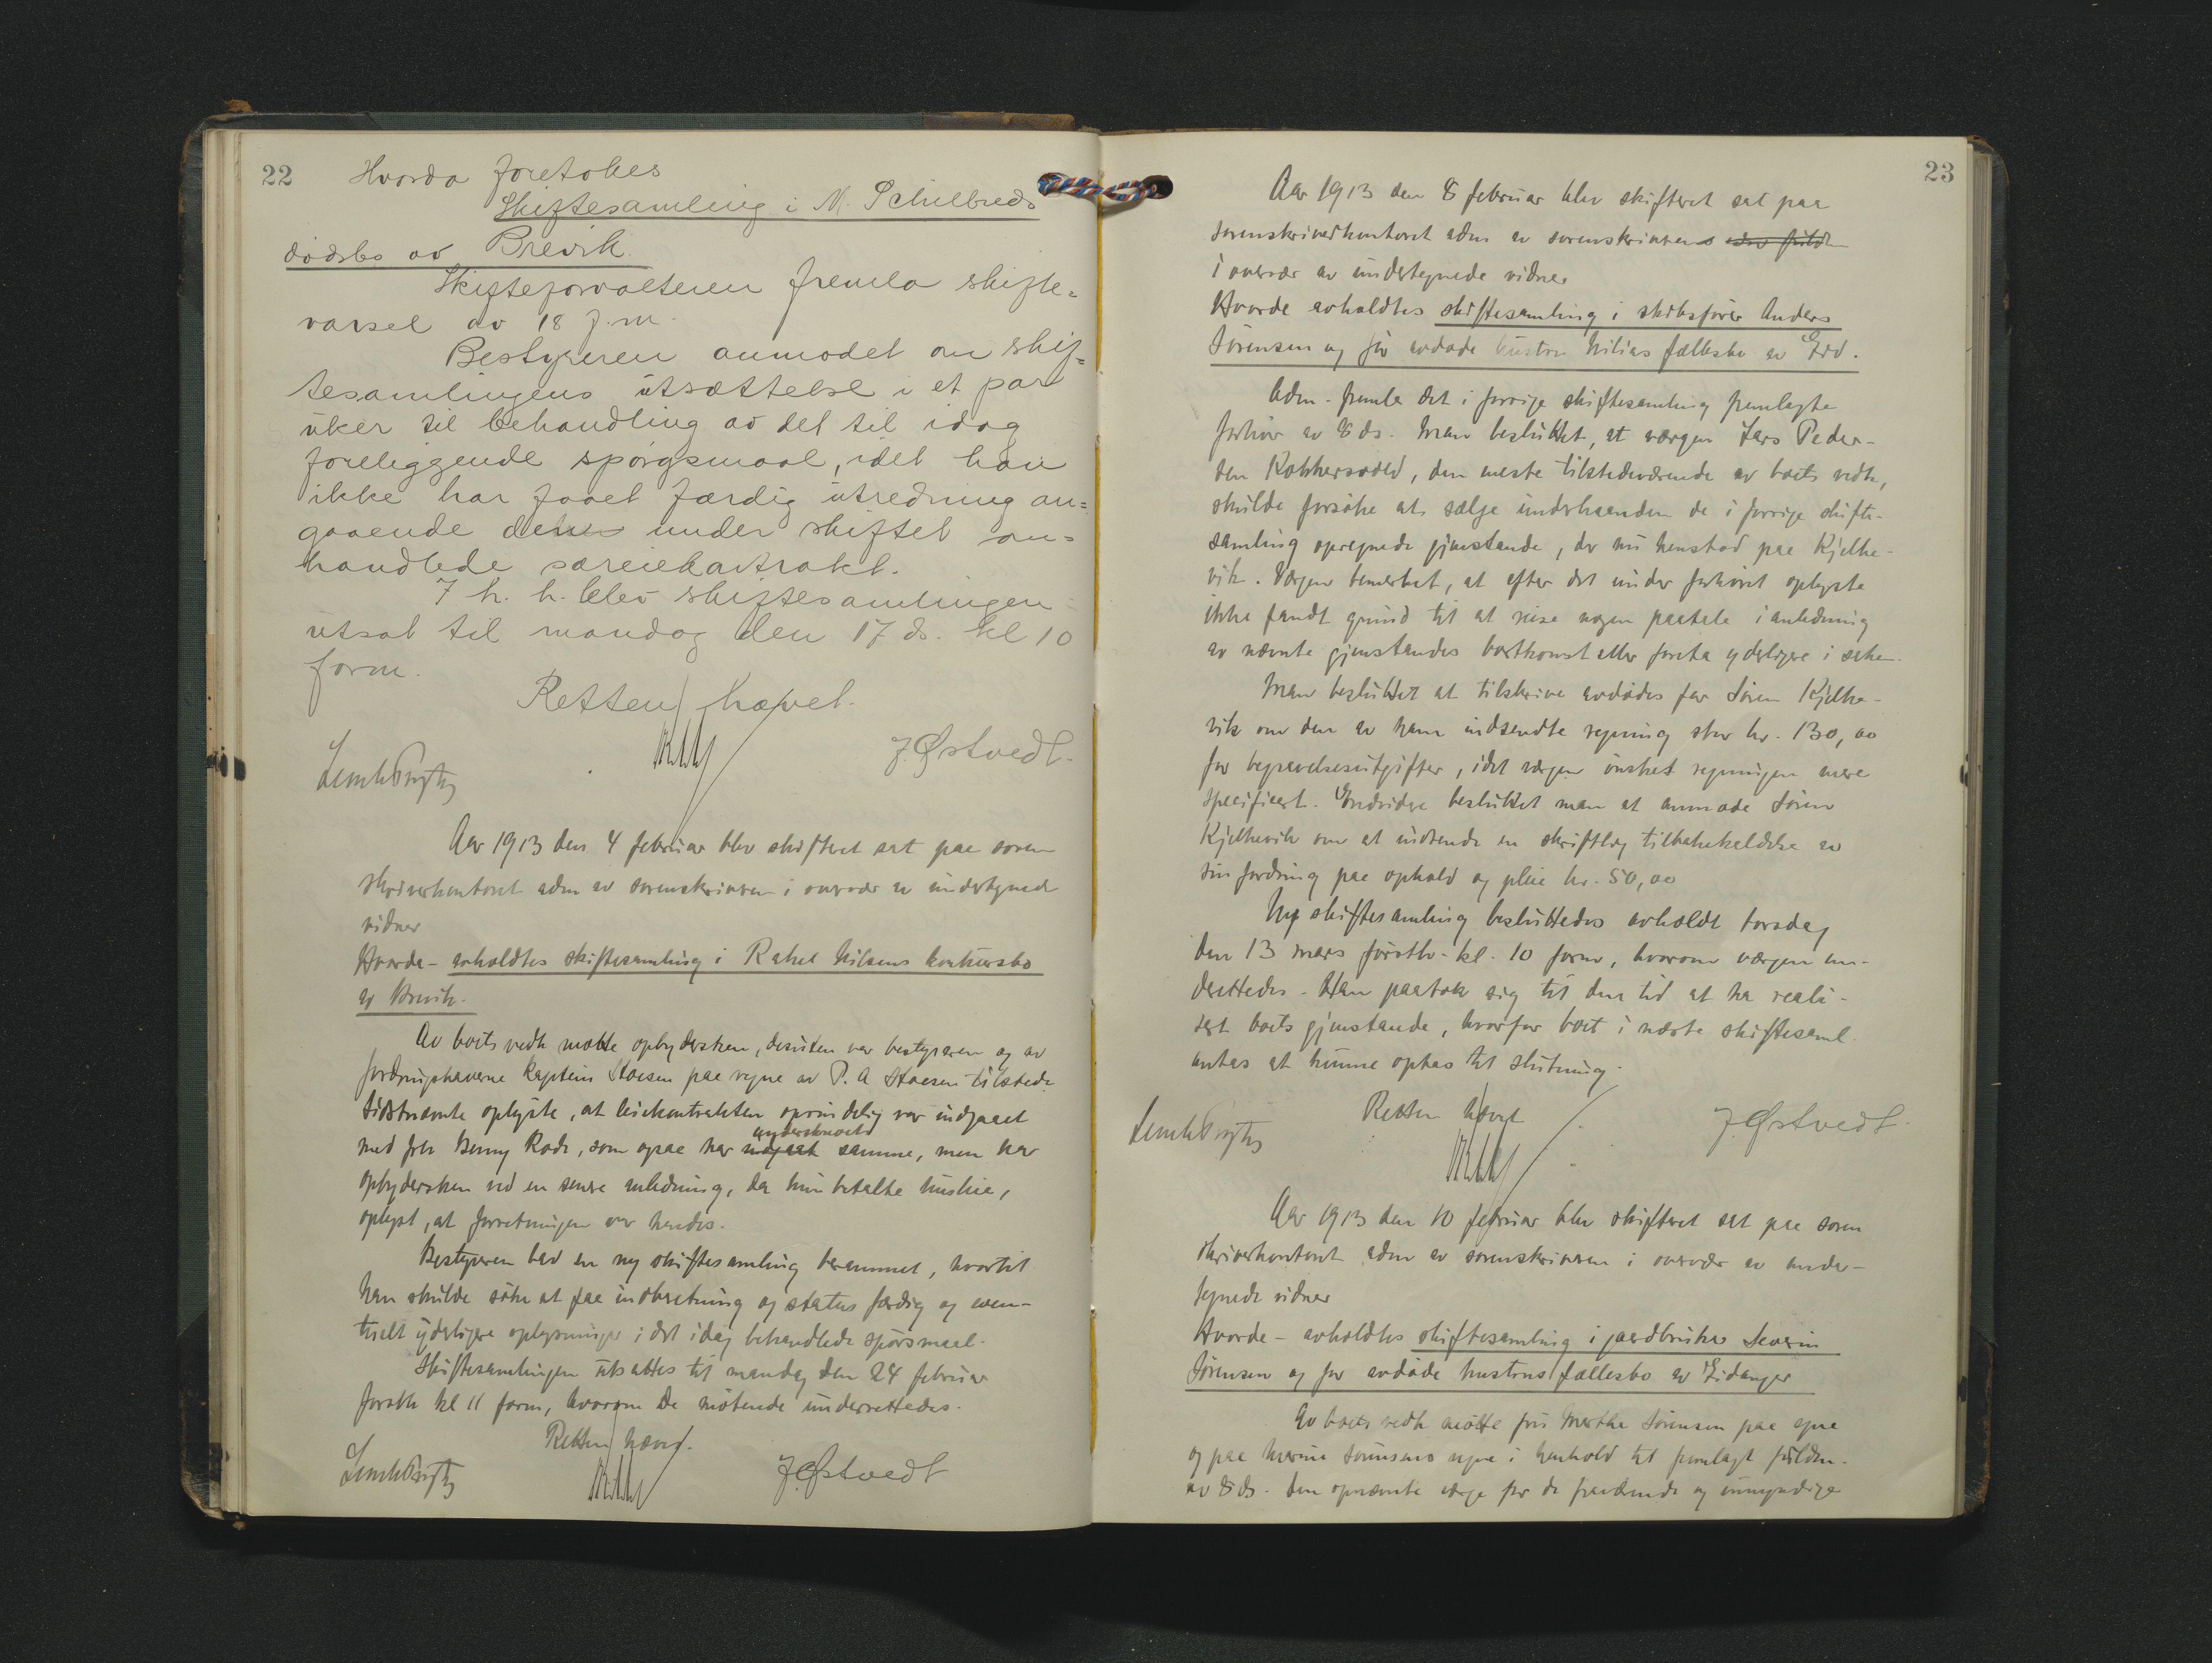 22
Hvorda foretokes
Skiftesamling i M. Schilbreds
dødsbo av Brevik.
Skifteforvalteren fremla skifte-
varsel av 18 f.m.
Bestyreren anmodet om skif-
tesamlingens utsættelse i et par
uker til behandling av det til idag
foreliggende spørgsmaal, idet han
ikke har faaet færdig utredning an-
gaaende den under skiftet om-
handlede særeiekontrakt.
I h. h. blev skiftesamlingen
utsat til mandag den 17 ds. kl 10
form.
Retten hævet.
J. Østvedt.
Aar 1913 den 4 februar blev skifteret sat paa soren
skriverkontoret adm av sorenskriveren i overvær av undertegnede
vidner
Hvorda - avholdtes skiftesamling i Rakel Nilsens konkursbo
av Brevik.
Av boets vedk møtte opbydersken, desuten var bestyreren og av
fordringshaverne kaptein Stoesen paa vegne av P. A Stoesen tilstede.
Sidstnævnte oplyste, at leiekontrakten oprindelig var indgaaet
med frk Benny Rode, som ogsaa har underskrevet indgaat samme, men har
opbydersken ved en senere anledning, da hun betalte husleie,
oplyst, at forretningen var hendes.
Bestyreren bad en ny skiftesamling berammet, hvortil
han skulde søke at faa indberetning og status færdig og even-
tuelt yderligere oplysninger i det idag behandlede spørsmaal.
Skiftesamlingen utsattes til mandag den 24 februar
førstk kl 11 form, hvorom de møtende underrettedes.
Retten hævet.
J. Østvedt
23
Aar 1913 den 8 februar blev skifteret sat paa
sorenskriverkontoret adm av sorenskriveren
i overvær av undertegnede vidner
Hvorda avholdtes skiftesamling i skibsfører Anders
Sørensen og for avdøde hustru Nilias fællesbo av Eid.
Adm. fremla det i forrige skiftesamling fremlagte
forhør av 8 ds. Man besluttet, at værgen Lars Peder-
sen Kokkersvold, den eneste tilstedeværende av boets vedk,
skulde forsøke at sælge underhaanden de i forrige skifte-
samling opregnede gjenstande, der nu henstod paa Kjelke-
vik. Værgen bemerket, at efter det under forhøret oplyste
ikke fandt grund til at reise nogen paatale i anledning
av nævnte gjenstandes bortkomst eller foreta yderligere i saken.
Man besluttet at tilskrive avdødes far Søren Kjelke-
vik om den av ham indsendte regning stor kr. 130,00
for begravelsesutgifter, idet værgen ønsket regningen mere
specificert. Endvidere besluttet man at anmode Søren
Kjelkevik om at indsende en skriftlig tilbakekaldelse av
sin fordring paa ophold og pleie kr. 50,00
Ny skiftesamling besluttedes avholdt torsdag
den 13 mars førstk. kl. 10 form, hvorom værgen un-
derettedes. Han paatok sig til den tid at ha reali-
sert boets gjenstande, hvorfor boet i næste skiftesaml.
antas at kunne optas til slutning.
Retten hævet
J. Østvedt.
Aar 1913 den 10 februar blev skifteret sat paa soren
skriverkontoret adm av sorenskriveren i overvær av under-
tegnede vidner
Hvorda - avholdtes skiftesamling i gaardbruker Severin
Sørensen og for avdøde hustrus fællesbo av Eidanger
Av boets vedk møtte fru Marthe Sørensen paa egne
og paa Sørensens vegne i henhold til fremlagt fuldm.
av 8 ds. Den opnævnte værge for de fraværende og umyndige